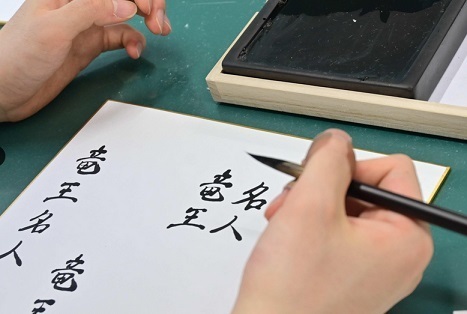 名人
竜王
竜王
竜王名人